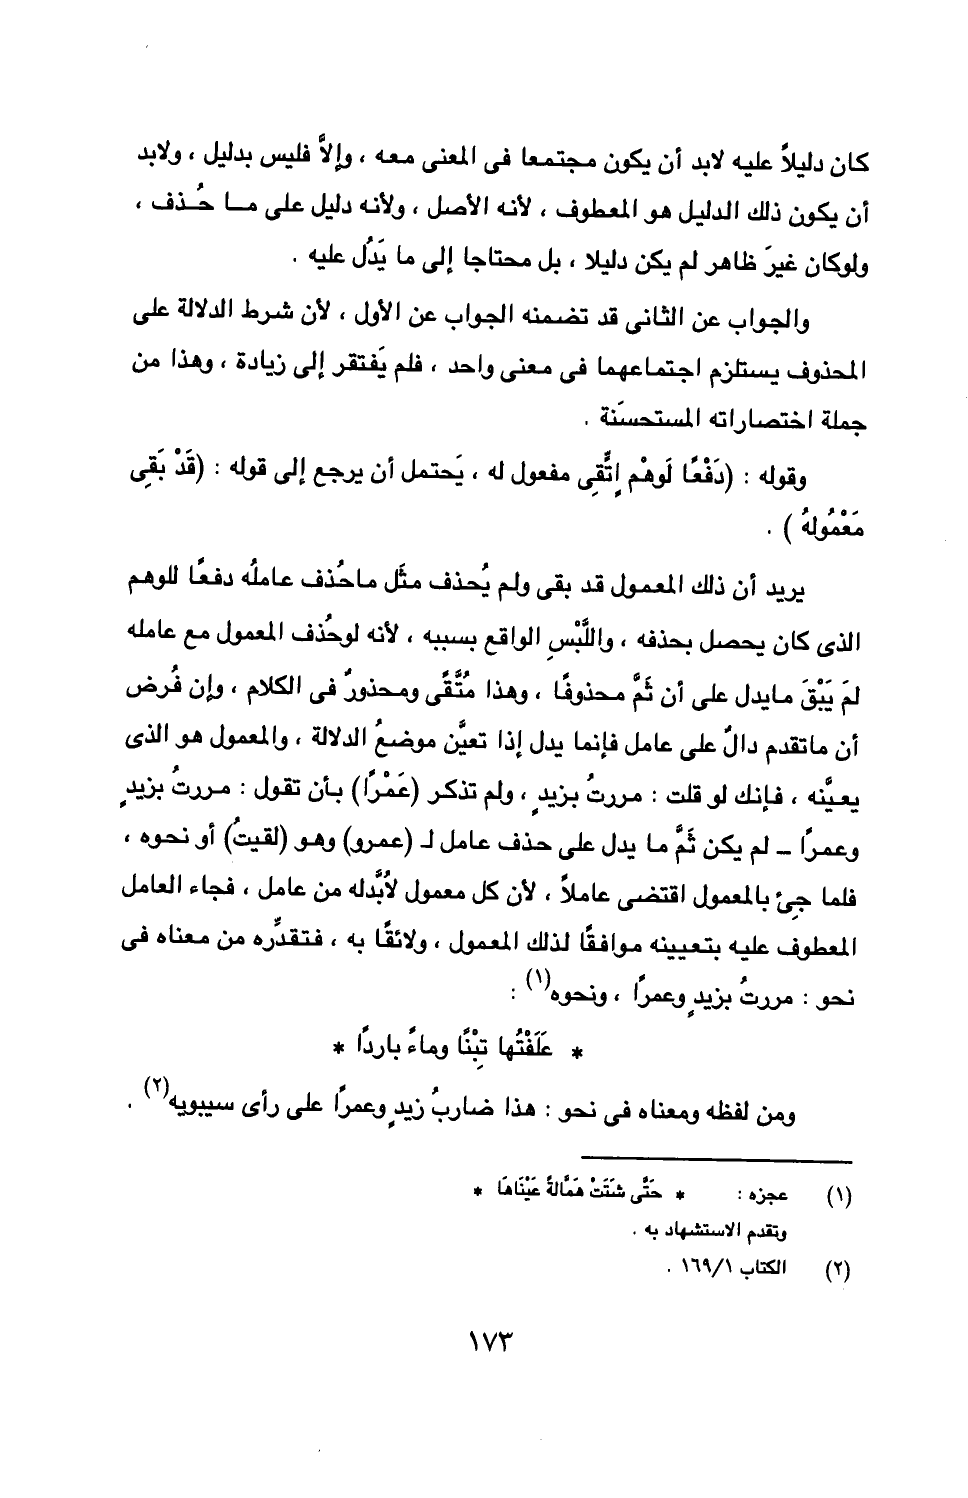 كان دليلاً عليه لابد أن يكون مجتمعا فى المعنى معه ، وإلاَّ فليس بدليل ، ولابد
أن يكون ذلك الدليل هو المعطوف ، لأنه الأصل ، ولأنه دليل على مـا حُـذف ،
ولوكان غيرَ ظاهر لم يكن دليلا ، بل محتاجا إلى ما يَدُل عليه .
والجواب عن الثانى قد تضمنه الجواب عن الأول ، لأن شرط الدلالة على
المحذوف يستلزم اجتماعهما فى معنى واحد ، فلم يَفتقر إلى زيادة ، وهذا من
جملة اختصاراته المستحسَنة .
وقوله : (دَفْعًا لَوهْم اِتُّقِى مفعول له ، يَحتمل أن يرجع إلى قوله : (قَدْ بَقِى
مَعْمُولهُ ) .
يريد أن ذلك المعمول قد بقى ولم يُحذف مثَل ماحُذف عاملُه دفعًا للوهم
الذى كان يحصل بحذفه ، واللَّبْسِ الواقع بسببه ، لأنه لوحُذف المعمول مع عامله
لمَ يَبْقَ مايدل على أن ثَمَّ محذوفًا ، وهذا مُتَّقًى ومحذورٌ فى الكلام ، وإن فُرض
أن ماتقدم دالٌ على عامل فإنما يدل إذا تعيَّن موضعُ الدلالة ، والمعمول هو الذى
يعيَّنه ، فإنك لو قلت : مررتُ بزيدٍ ، ولم تذكر (عَمْرًا) بأن تقول : مررتُ بزيدٍ
وعمرًا – لم يكن ثَمَّ ما يدل على حذف عامل لـ (عمرو) وهو (لقيتُ) أو نحوه ،
فلما جِئ بالمعمول اقتضى عاملاً ، لأن كل معمول لاُبَّدله من عامل ، فجاء العامل
المعطوف عليه بتعيينه موافقًا لذلك المعمول ، ولائقًا به ، فتقدِّره من معناه فى
نحو : مررتُ بزيدٍ وعمرًا ، ونحوه(١) :
* عَلَفْتُها تِبْنًا وماءً باردًا *
ومن لفظه ومعناه فى نحو : هذا ضاربُ زيدٍ وعمرًا على رأى سيبويه(٢) .
(١) عجزه : * حَتَّى شتَتَْ هَمَّالةً عَيْنَاهَا *
وتقدم الاستشهاد به .
(٢) الكتاب ١٦٩/١ .
١٧٣